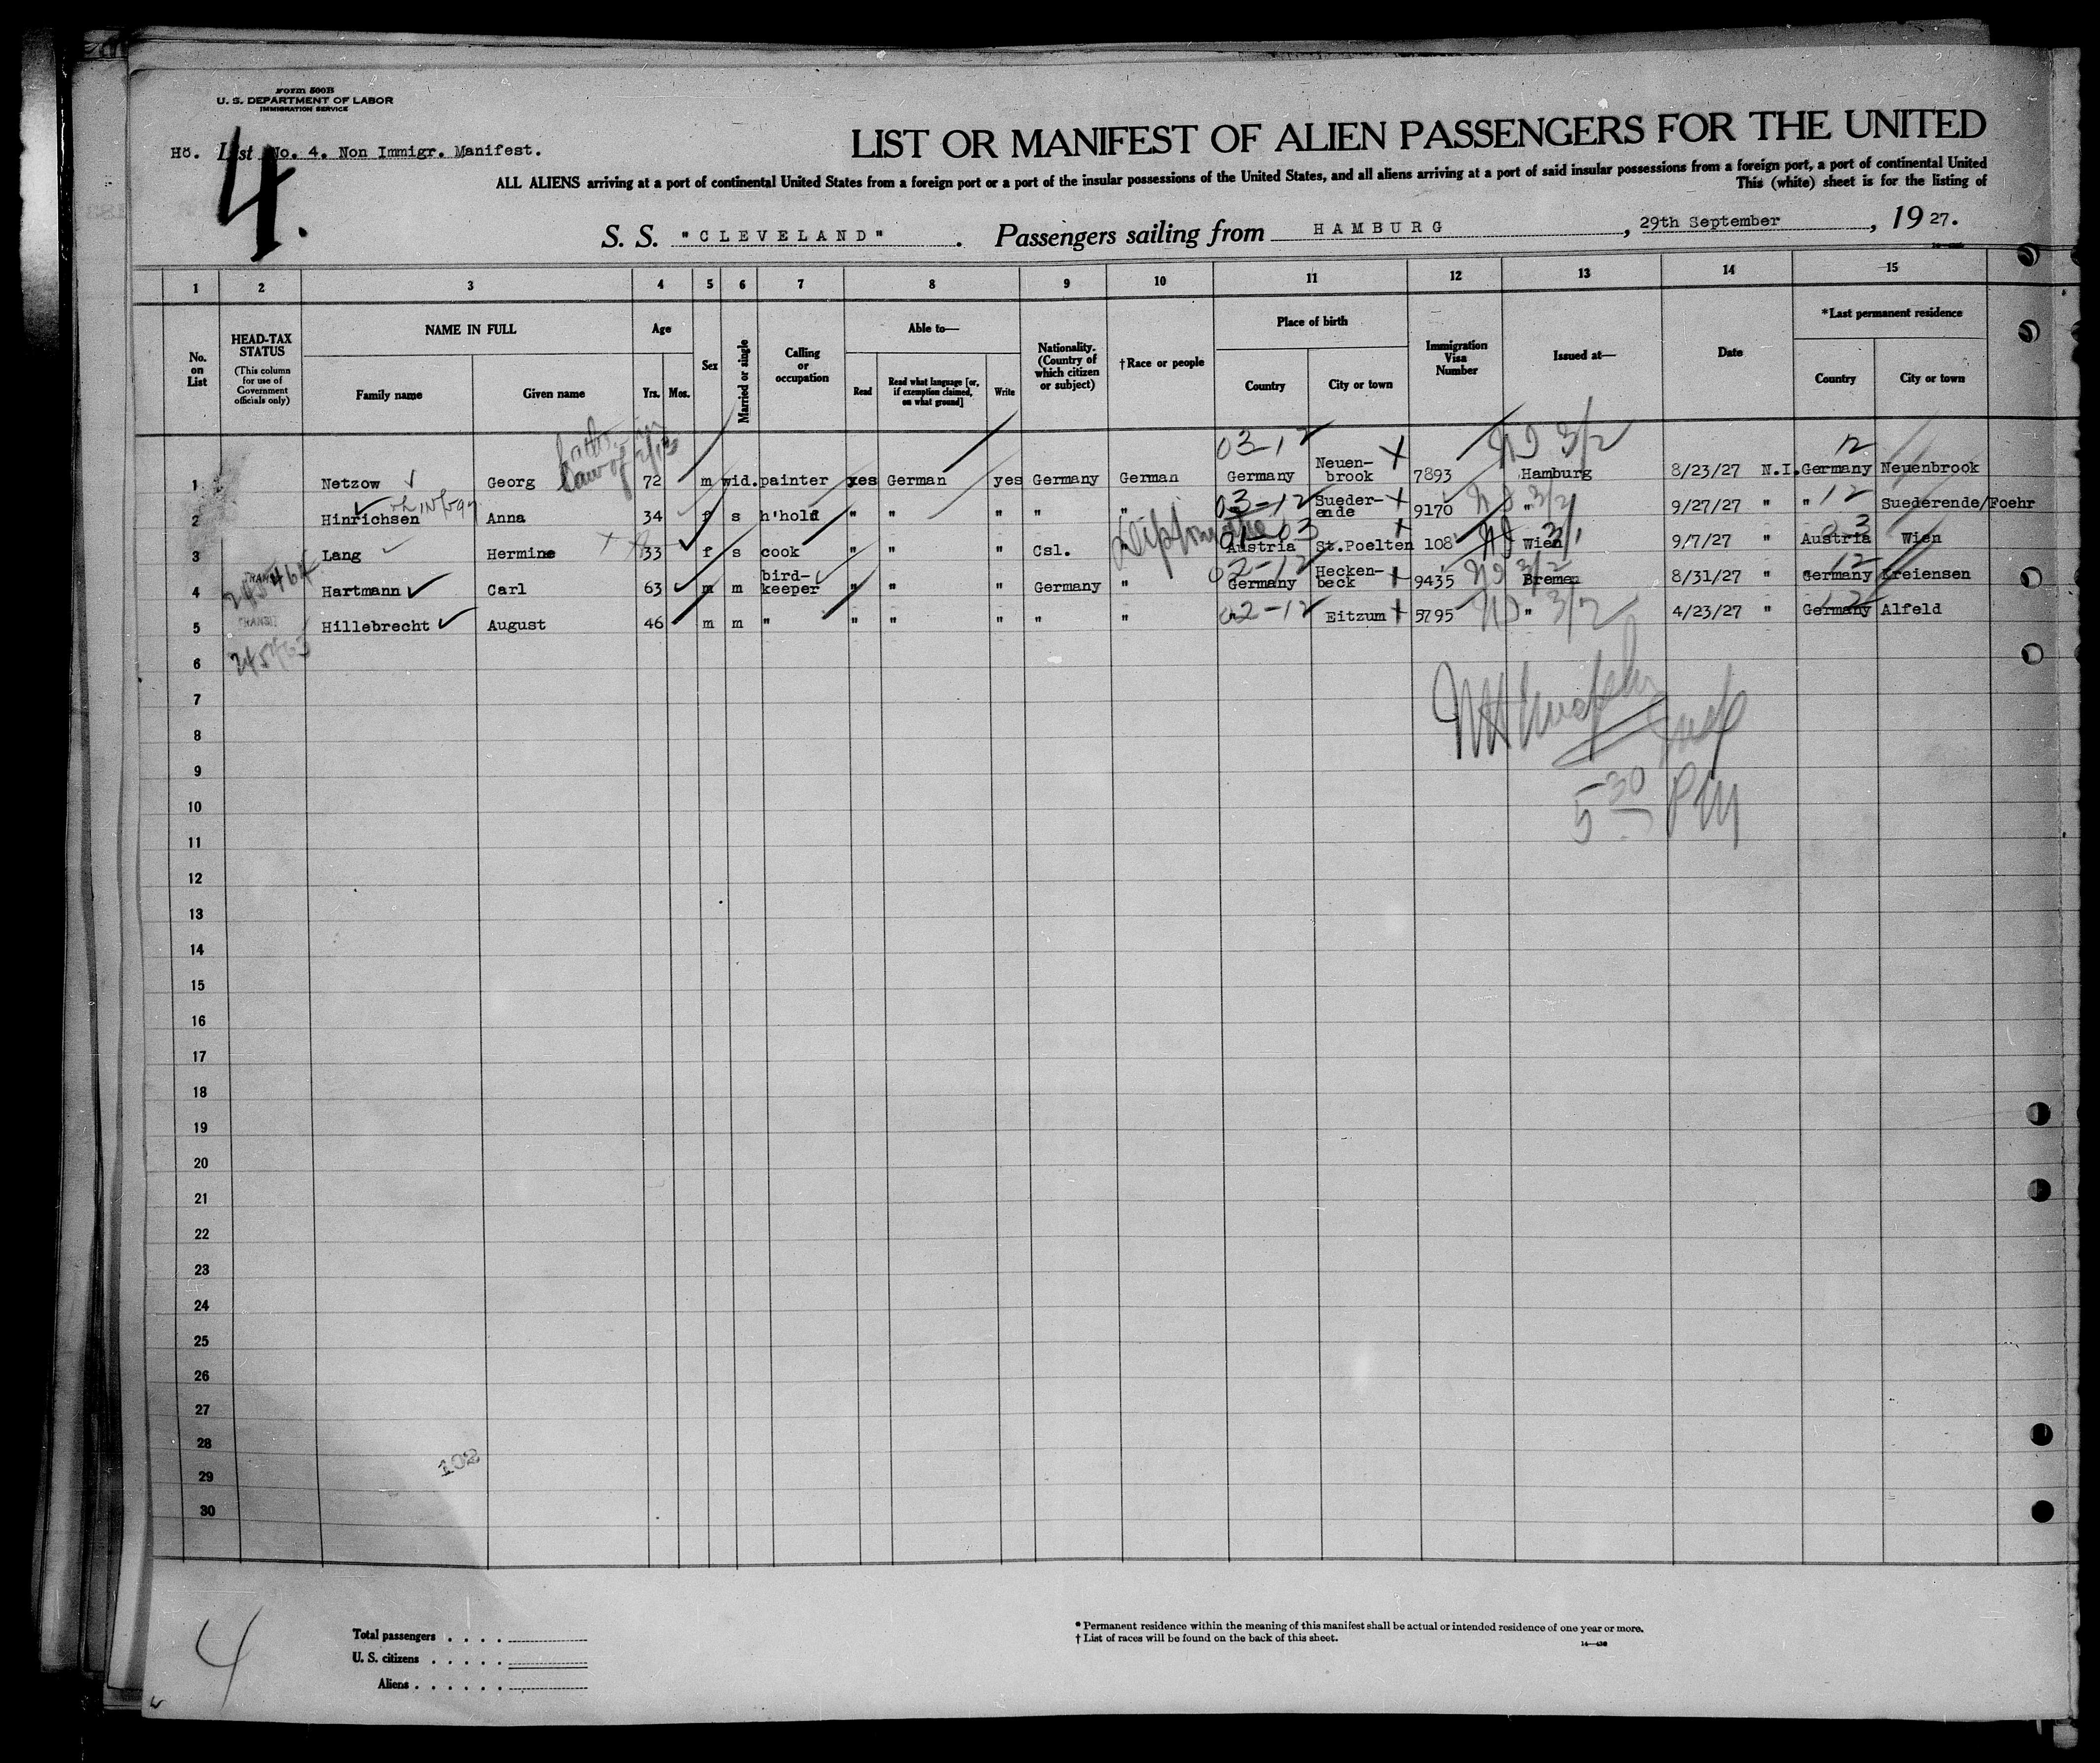 Form 500B
U. S. DEPARTMENT OF LABOR
IMMIGRATION SERVICE
Hö. List No. 4. Non Immigr. Manifest.
4.
LIST OR MANIFEST OF ALIEN PASSENGERS FOR THE UNITED
ALL ALIENS arriving at a port of continental United States from a foreign port or a port of the insular possessions of the United States, and all aliens arriving at a port of said insular possessions from a foreign port, a port of continental United
This (white) sheet is for the listing of
S. S. "CLEVELAND". Passengers sailing from HAMBURG, 29th September, 1927.
1 2 3 4 5 6 7 8 9 10 11 12 13 14 15
No. on List
HEAD-TAX STATUS (This column for use of Government officials only)
NAME IN FULL
Family name Given name
Age
Yrs. Mos.
Sex
Married or single
Calling or occupation
Able to—
Read Read what language [or, if exemption claimed, on what ground] Write
Nationality. (Country of which citizen or subject)
†Race or people
Place of birth
Country City or town
Immigration Visa Number
Issued at—
Date
*Last permanent residence
Country City or town
03-12 NI 3/2 12
1 Netzow Georg 72 m wid. painter yes German yes Germany German Germany Neuen-brook 7893 Hamburg 8/23/27 N.I. Germany Neuenbrook
03-12 NI 3/2 12
2 Hinrichsen Anna 34 f s h'hold " " " " " " Sueder-ende 9170 " 9/27/27 " " Suederende/Foehr
03 NI 3/1 03
3 Lang Hermine 33 f s cook " " " Csl. " Austria St.Poelten 108 Wien 9/7/27 " Austria Wien
TRANSIT 245464 02-12 NI 3/2 12
4 Hartmann Carl 63 m m bird-keeper " " " Germany " Germany Hecken-beck 9435 Bremen 8/31/27 " Germany Kreiensen
TRANSIT 245463 02-12 NI 3/2 12
5 Hillebrecht August 46 m m " " " " " " " Eitzum 5795 " 4/23/27 " Germany Alfeld
6
7
8
9
5 30 PM
10
11
12
13
14
15
16
17
18
19
20
21
22
23
24
25
26
27
28
102
29
30
4
Total passengers . . . .
U. S. citizens . . . . .
Aliens . . . . . .
* Permanent residence within the meaning of this manifest shall be actual or intended residence of one year or more.
† List of races will be found on the back of this sheet.